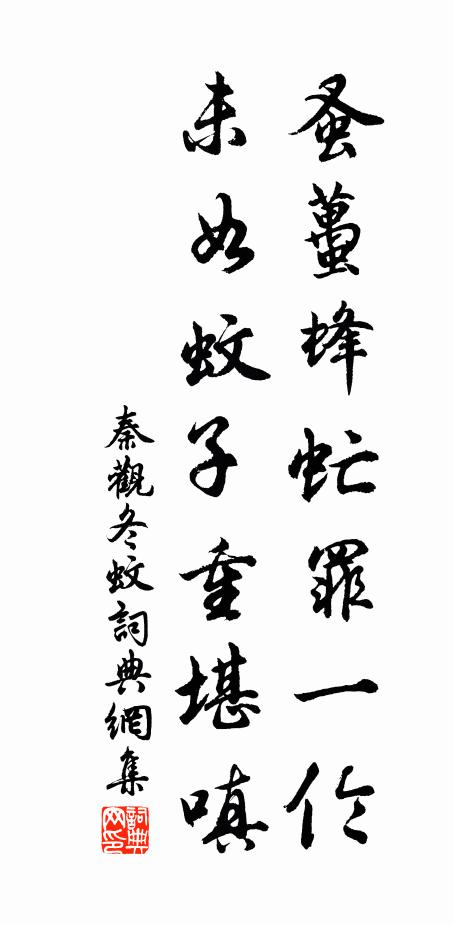 蚤蠆蜂虻罪一倫
未如蚊子重堪嗔
秦觀冬蚊詞典網集
詞典网印